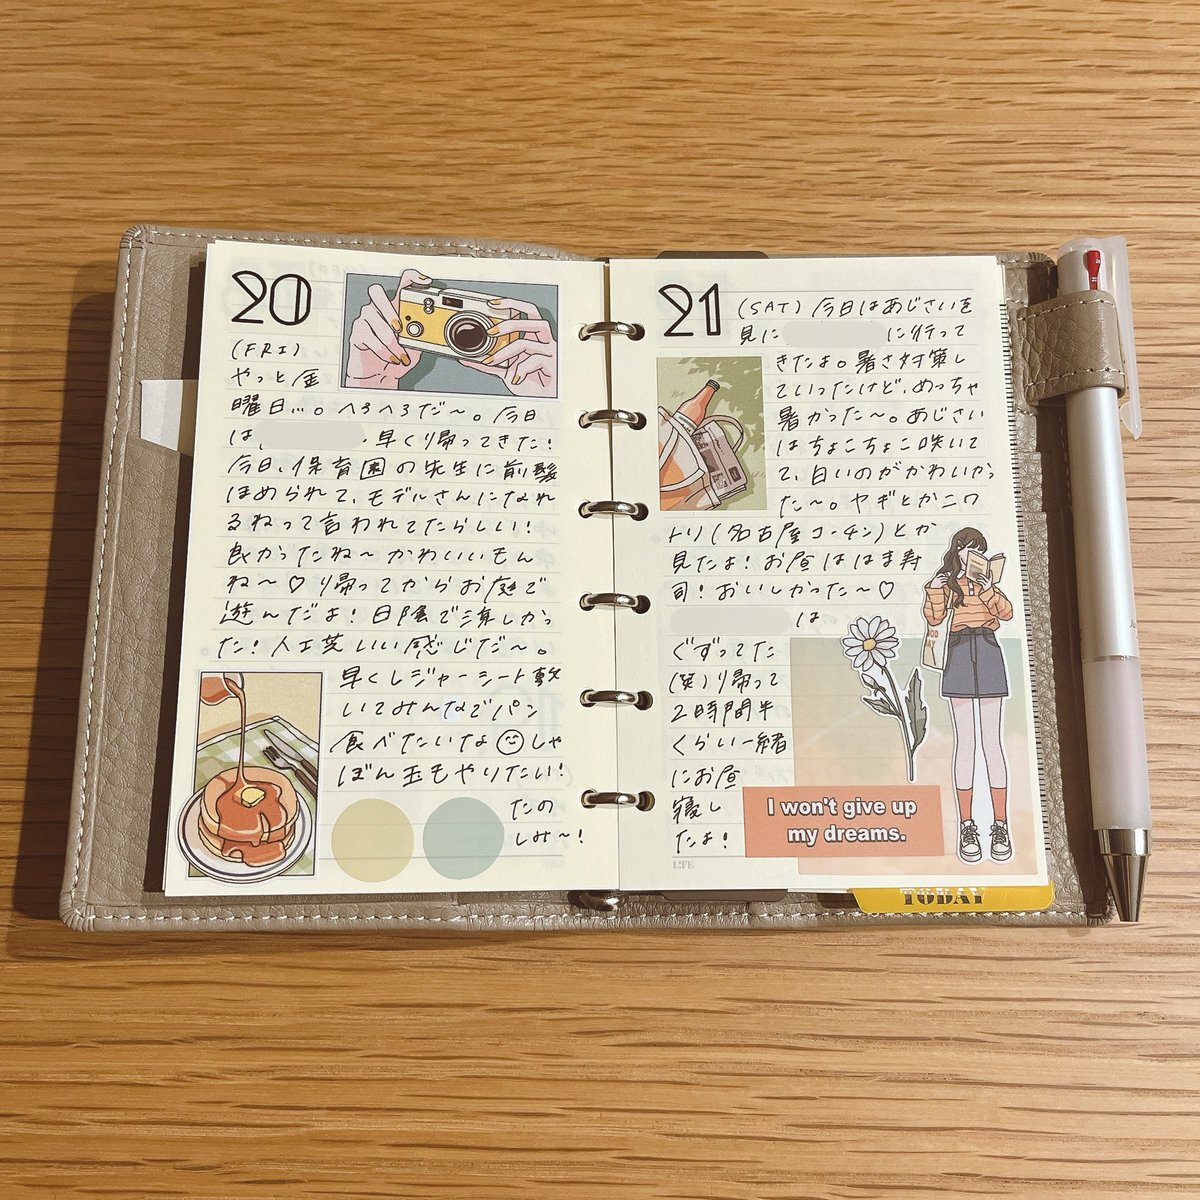 20
(FRI)
やっと金
曜日…。へろへろだ〜。今日
は 早く帰ってきた！
今日、保育園の先生に前髪
ほめられて、モデルさんになれ
るねって言われてたらしい！
良かったね〜かわいいもん
ね〜♡帰ってからお庭で
遊んだよ！日陰で涼しかっ
た！人工芝いい感じだ〜。
早くレジャーシート敷
いてみんなでパン
食べたいな☺しゃ
ぼん玉もやりたい！
たの
しみ〜！
21
(SAT) 今日はあじさいを
見に に行って
きたよ。暑さ対策し
ていったけど、めっちゃ
暑かった〜。あじさい
はちょこちょこ咲いて
て、白いのがかわいかっ
た〜。ヤギとかニワ
トリ(名古屋コーチン)とか
見たよ！お昼ははま寿
司！おいしかった〜♡
は
ぐずってた
(笑)帰って
2時間半
くらい一緒
にお昼
寝し
たよ！
I won't give up
my dreams.
LIFE
TODAY